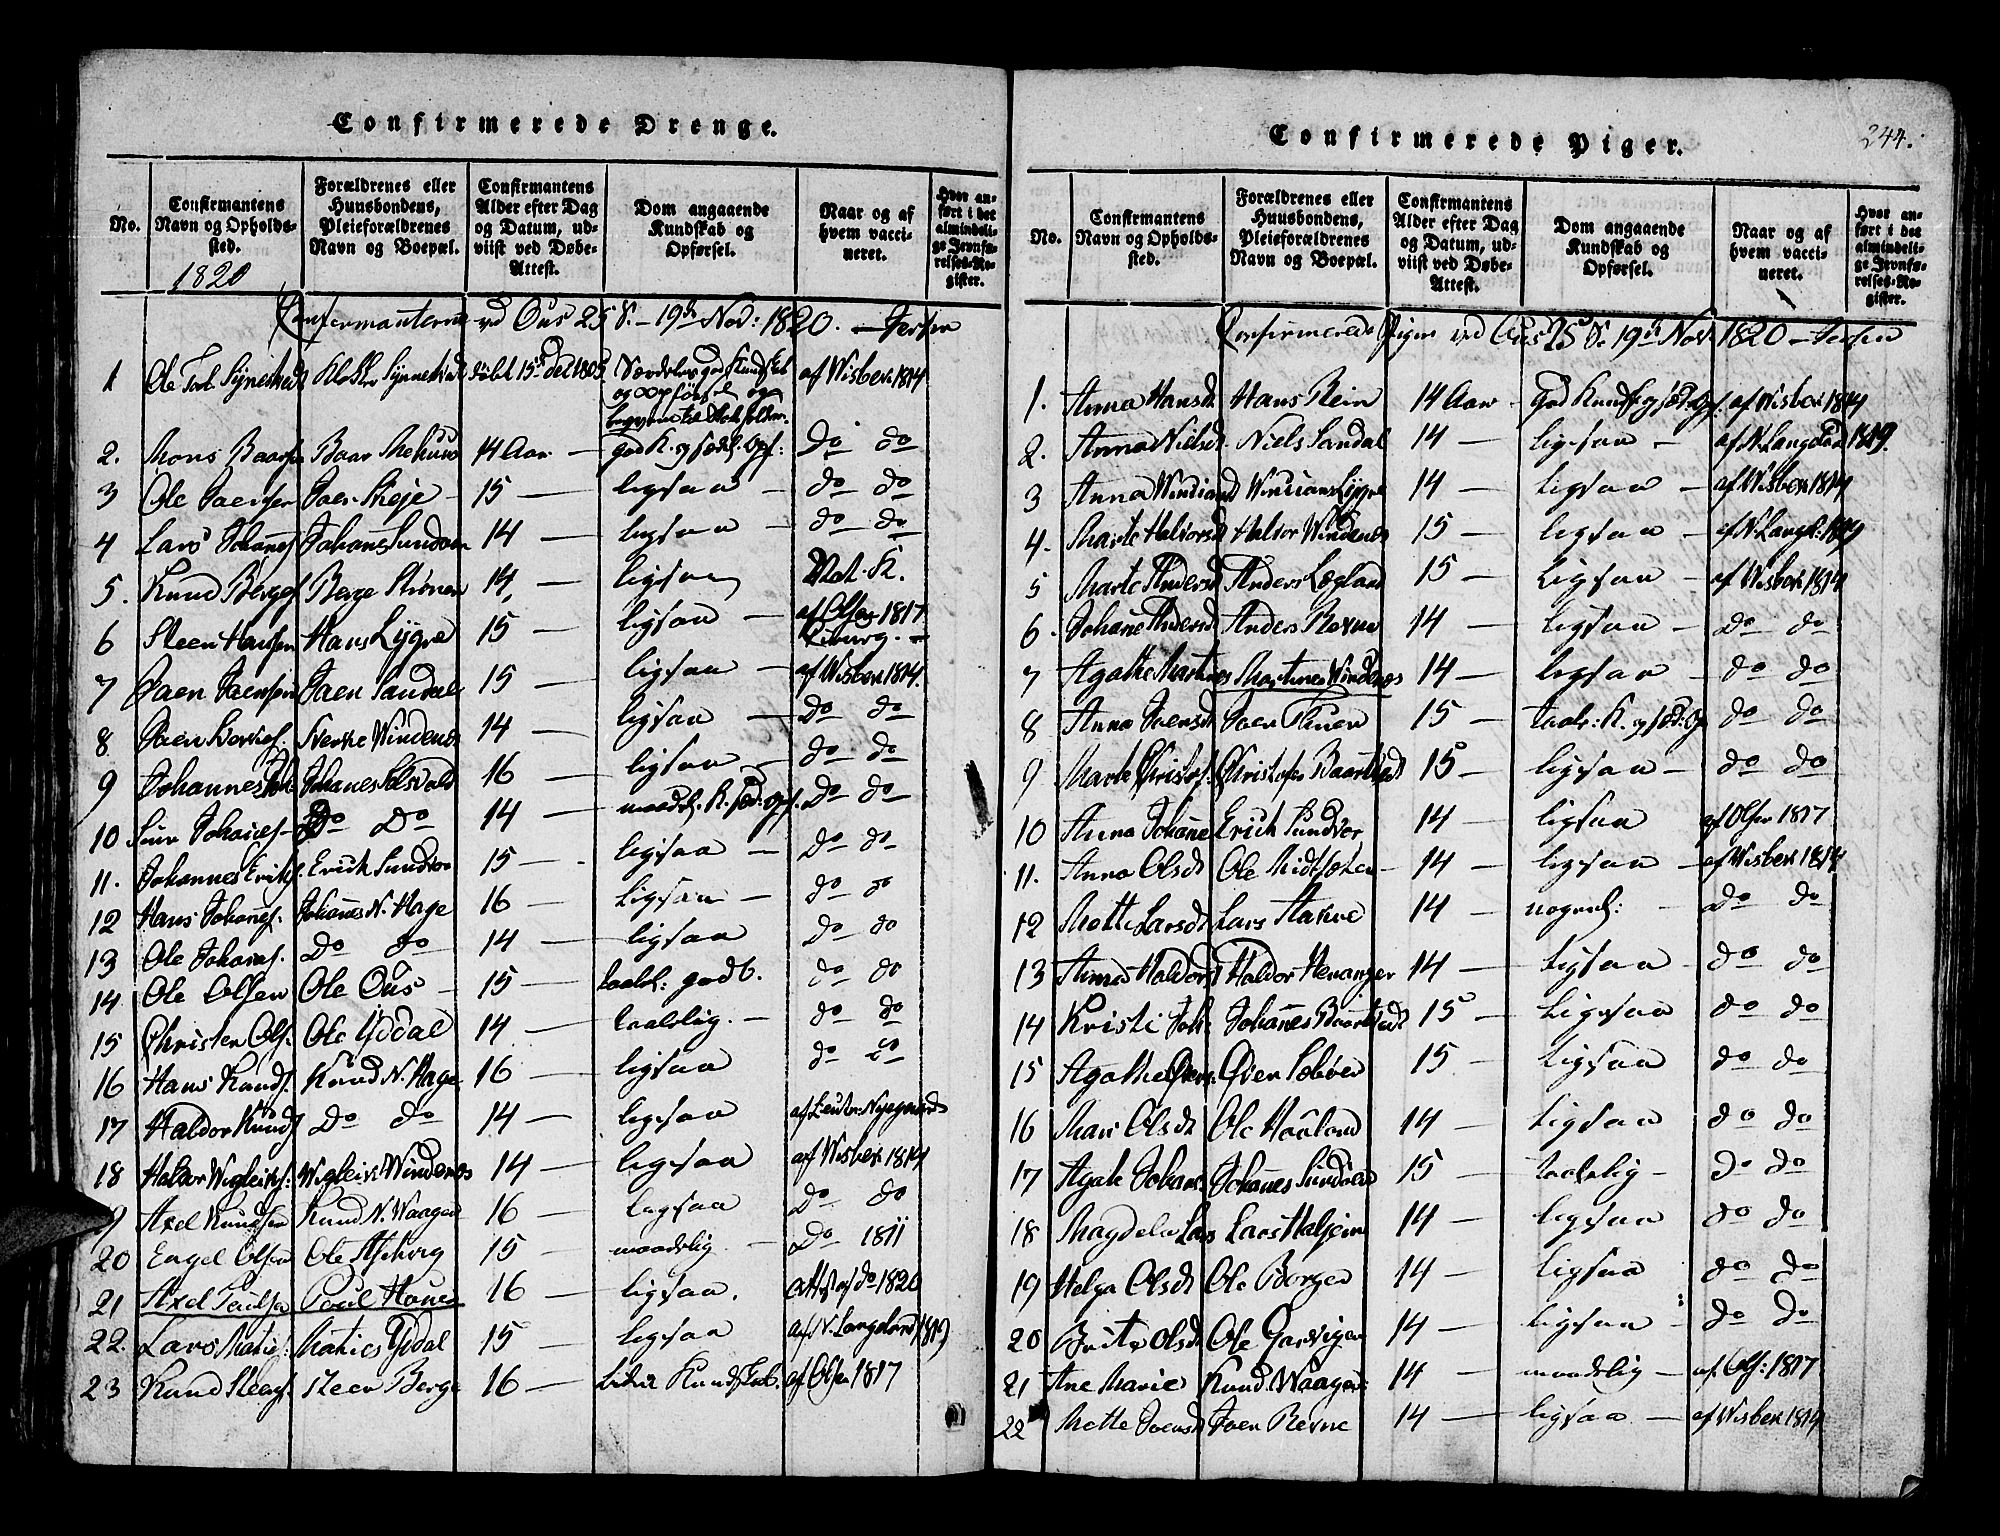 Confirmerede Drenge.
No. | Confirmantens Navn og Opholds-sted. 1820 | Forældrenes eller Huusbondens, Pleieforældrenes Navn og Boepæl. | Confirmantens Alder efter Dag og Datum, ud-viist ved Døbe-Attest. | Dom angaaende Kundskab og Opførsel. | Naar og af hvem vacci-neret. | Hvor an-ført i det almindeli-ge Jevnfø-relses-Re-gister.
Confirmanterne ved Ous 25 S. - 19de Nov: 1820. -
1 | Ole | døbt 15 dec 1805 | god Kundskab og Opførsel og | af Wisbek 1814
2. Mons | Baar | 14 Aar - | god K. og sædel. Opf: | Do do
3 Ole Jaensen | Jaen | 15 - | ligsaa - | do do
4 Lars Johanes. | Johanes Sundvor | 14 - | ligsaa - | do do
5. Knud Berges. | Berge | 14 - | ligsaa | Nat. K.
6 Steen Hansen | Hans Lygre | 15 - | ligsaa - | af Olsen 1817
7 Jaen Jaensen | Jaen Sandal | 15 - | ligsaa - | af Wisbek 1814.
8 Jaen | Windenes | 14 - | ligsaa - | Do do
9 Johannes Joh. | Johanes | 16 - | ligsaa - | do do
10 Johanes - | Do Do | 14 - | maadel. K. sæd: Opf. | Do do
11. Johannes Eriks. | Erick Sundvor | 15 - | ligsaa - | do do
12 Hans Johanes. | Johanes N. Hage | 16 - | ligsaa - | do do
13 Ole Johanes. | Do do | 14 - | ligsaa | do do
14. Ole Olsen | Ole Ous - | 15 - | taalel: godt. | do do
15 Christen Ols. | Ole Yddal | 14 - | taalelig. - | do do
16 Hans Knuds. | Knud N. Hage | 16 - | ligsaa | do do
17 Haldor Knuds. | Do do | 14 - | ligsaa | af Leutn. Nyegaard
18 Haldor Wigleiks. | Wigleik Windenes | 14 - | ligesaa | af Wisbek 1814
19 Axel Knudsen | Knud N. Waagen | 16 - | ligsaa | Do do
20 Engel Olsen | Ole | 15 - | maadelig. - | Do 1811
21 Axel Poulsen | Poul | 16 - | ligsaa. | Att. af do 1820
22. Lars Maties. | Maties Yddal | 15 - | ligsaa | af N. Langeland 1819
23 Knud Steens. | Steen Berge | 16 - | Liden Kundskab. | af Olsen 1817
Confirmerede Piger.
244.
No. | Confirmantens Navn og Opholds-sted. | Forældrenes eller Huusbondens, Pleieforældrenes Navn og Boepæl. | Confirmantens Alder efter Dag og Datum, ud-viist ved Døbe-Attest. | Dom angaaende Kundskab og Opførsel. | Naar og af hvem vacci-neret. | Hvor an-ført i det almindeli-ge Jevnfø-relses-Re-gister.
Confirmerede Piger ved Ous 25 S. 19de Nov. 1820 -
1. Anna Hansd. | Hans Rein | 14 Aar - | God Kundsk. og sædel. Opf. | af Wisbek 1814
2. Anna Nielsd. | Niels Sandal | 14 - | ligesaa - | af N. Langeland 1819.
3 Anna | Lygre | 14 - | Ligsaa - | af Wisbek 1814
4. Marte Halvorsd. | Halvor Windenes | 15 - | ligsaa - | af N. Langel: 1819
5 Marte Andersd. | Anders Legland | 15 - | Ligsaa - | af Wisbek 1814
6. Johane Andersd. | Anders Revne | 14 - | ligsaa - | Do do
7 Agathe Martines | Martines Windenes | 14 - | ligsaa - | do do
8 Anna Jaensd. | Jaen Tunen | 15 - | taal: K. og sæd: Op. | do do
9 Marte Christof. | Christofer | 15 - | ligsaa - | do do
10 Anna Johane | Erich Sundvor | 14 - | ligsaa | af Olsen 1817
11. Anna Olsd. | Ole Midtsæter - | 14 - | ligsaa - | af Wisbek 1814
12 Mette Larsd. | Lars | 14 - | nogenl: - | Do do
13 Anna Haldors | Haldor Hevanger | 14 - | Ligsaa - | do do
14 Kristi Joh. | Johanes | 15 - | Ligesaa | do do
15 Agathe | | 15 - | Ligsaa | do do
16 Mari Olsd. | Ole Haaland | 14 - | Ligsaa | do do
17 Agate Johans. | Johanes Sundvor | 15 - | taalelig - | do do
18 Magdela Lars | Lars Haljem | 14 - | ligesaa | do do
19 Helga Olsd. | Ole Borgen | 14 - | ligsaa | do do
20 Brite Olsd. | Ole Garvigen | 14 - | ligsaa | do do
21 Ane Marie | Knud Waagen | 14 - | maadelig - | af Ols: 1817
22 Mette Jaensd. | Jaen Revne | 14 - | ligsaa - | af Wisbek 1814